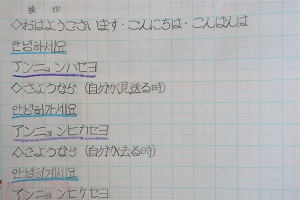 挨拶
◇おはようございます・こんにちは・こんばんは
안녕하세요
アンニョンハセヨ
◇さようなら（自分が見送る時）
안녕히가세요
アンニョンヒカセヨ
◇さようなら（自分が去る時）
안녕히계세요
アンニョンヒケセヨ